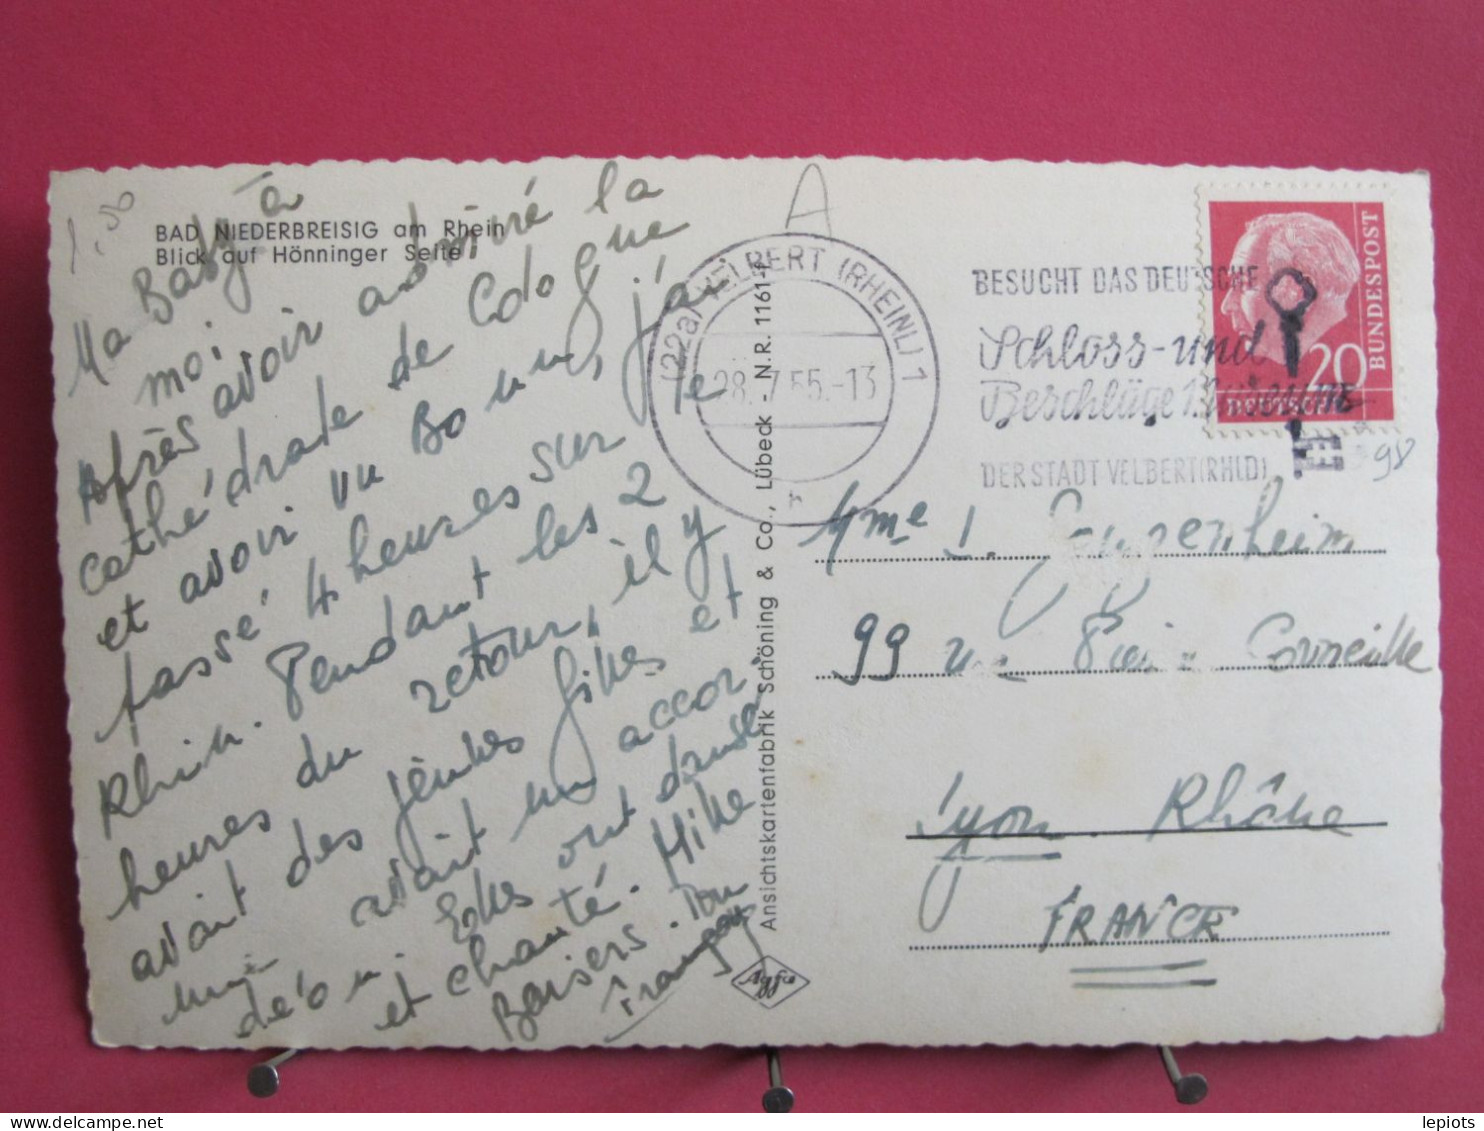 1,00
BAD NIEDERBREISIG am Rhein
Blick auf Hönninger Seite
Ma Baby à
moi.
Après avoir admiré la
cathédrale de Cologne
et avoir vu Bonn, j'ai
passé 4 heures sur le
Rhin. Pendant les 2
heures du retour, il y
avait des jeunes filles et
une avait un accor
déon. Elles ont dansé
et chanté. Mille
Baisers. Ton
François
Ansichtskartenfabrik Schöning & Co., Lübeck - N.R. 1161-f
Agfa
A
(22a) VELBERT (RHEINL) 1
28.7.55.-13
BESUCHT DAS DEUTSCHE
Schloss- und
Beschläge Museum
DER STADT VELBERT (RHLD)
20
DEUTSCHE
BUNDESPOST
98
Mme L.
99 rue Pierre Corneille
Lyon. Rhône
FRANCE
lepiots